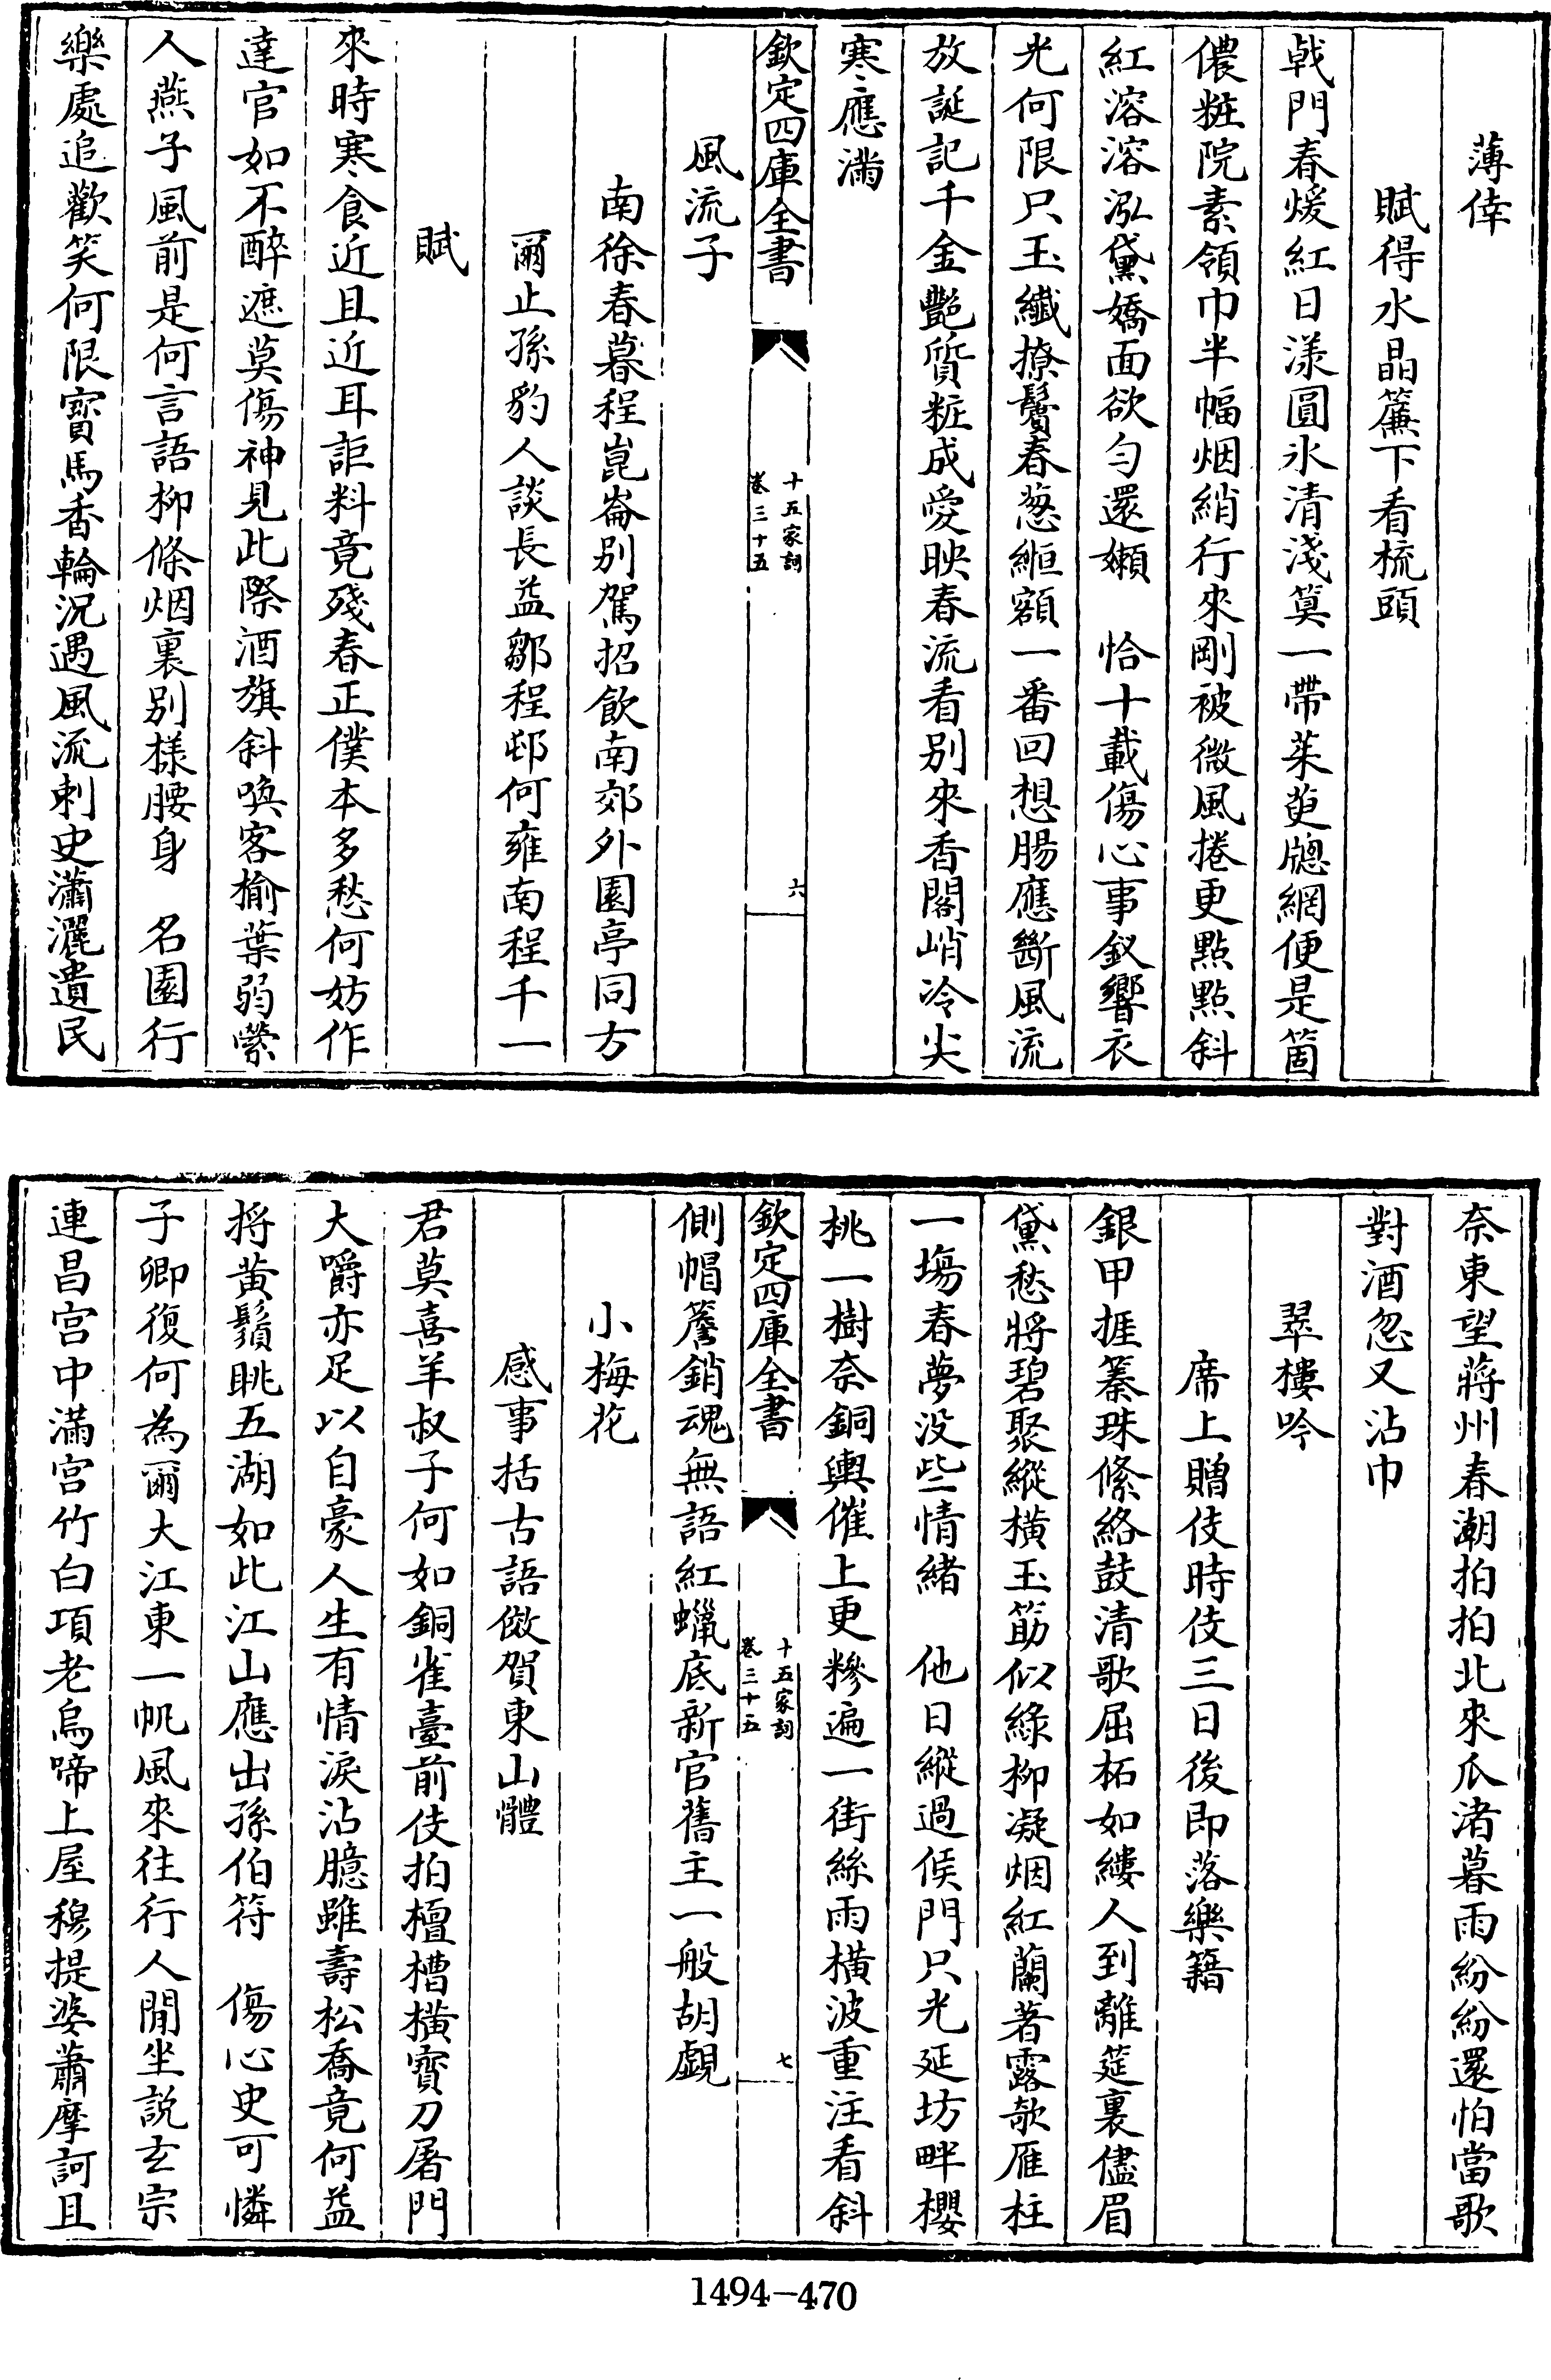 薄倖
賦得水晶簾下看梳頭
戟門春煖紅日漾圓氷清淺算一帶茱萸牕網便是箇
儂粧院素領巾半幅烟綃行來剛被微風捲更點點斜
紅溶溶泓黛嬌面欲勻還嬾　恰十載傷心事釵響衣
光何限只玉纖撩鬢春葱縆額一番回想腸應斷風流
放誕記千金艷質粧成愛映春流看别來香閣峭冷尖
寒應滿
欽定四庫全書
十五家詞
卷三十五
六
風流子
南徐春暮程崑崙别駕招飲南郊外園亭同方
爾止孫豹人談長益鄒程邨何雍南程千一
賦
來時寒食近且近耳詎料竟殘春正僕本多愁何妨作
達官如不醉遮莫傷神見此際酒旗斜喚客榆葉弱縈
人燕子風前是何言語柳條烟裏别樣腰身　名園行
樂處追歡笑何限寳馬香輪況遇風流刺史瀟灑遺民
奈東望蔣州春潮拍拍北來瓜渚暮雨紛紛還怕當歌
對酒忽又沾巾
翠樓吟
席上贈伎時伎三日後即落樂籍
銀甲捱蓁珠絛絡鼓清歌屈柘如縷人到離筵裏儘眉
黛愁將碧聚縱橫玉筯似綠柳凝烟紅蘭著露欹雁柱
一塲春夢没些情緒　他日縱過侯門只光延坊畔櫻
桃一樹奈銅輿催上更糝遍一街絲雨橫波重注看斜
欽定四庫全書
十五家詞
卷三十五
七
側帽簷銷魂無語紅蠟底新官舊主一般胡覷
小梅花
感事括古語倣賀東山體
君莫喜羊叔子何如銅雀臺前伎拍檀槽橫寳刀屠門
大嚼亦足以自豪人生有情淚沾臆雖壽松喬竟何益
將黄鬚眺五湖如此江山應出孫伯符　傷心史可憐
子卿復何為爾大江東一帆風來往行人閒坐説玄宗
連昌宫中滿宫竹白項老烏啼上屋穆提婆蕭摩訶且
1494—470